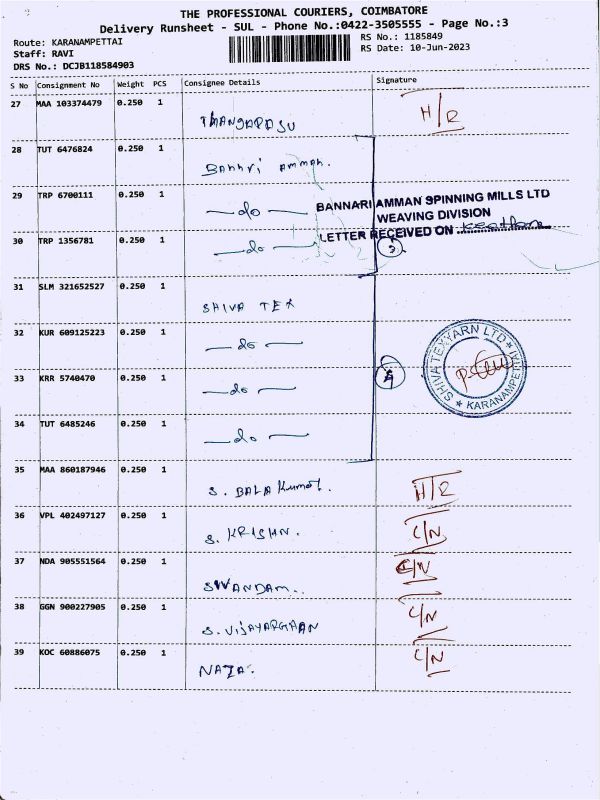 THE PROFESSIONAL COURIERS, COIMBATORE
Delivery Runsheet - SUL - Phone No.:0422-3505555 - Page No.:3
Route: KARANAMPETTAI RS No.: 1185849
Staff: RAVI RS Date: 10-Jun-2023
DRS No.: DCJB118584903
S No Consignment No Weight PCS Consignee Details Signature
27 MAA 103374479 0.250 1 THANGARASU H/R
28 TUT 6476824 0.250 1 Bannri Amman.
29 TRP 6700111 0.250 1 — do —
BANNARI AMMAN SPINNING MILLS LTD
WEAVING DIVISION
LETTER RECEIVED ON
30 TRP 1356781 0.250 1 — do — 3
31 SLM 321652527 0.250 1 SHIVA TEX
32 KUR 609125223 0.250 1 — do —
33 KRR 5740470 0.250 1 — do — 4
SHIVA TEXYARN LTD * KARANAMPETTAI *
34 TUT 6485246 0.250 1 — do —
35 MAA 860187946 0.250 1 S. BALA Kumar. H/R
36 VPL 402497127 0.250 1 S. KRISHN. C/N
37 NDA 905551564 0.250 1 C/N
38 GGN 900227905 0.250 1 S. VIJAYARGAAN C/N
39 KOC 60886075 0.250 1 C/N